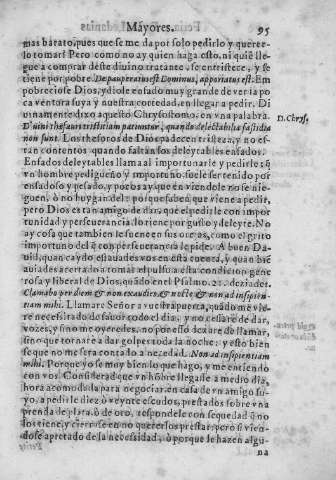 Mayores. 95
mas barato, pues que se me da por solo pedirlo y querer-
lo tomar? Pero como no ay quien haga esto, ni quiẽ lle-
gue a comprar deste diuino tratante, se entristece, y se
tiene por pobre. De pauperatus est Dominus, apporiatus est: Em
pobreciose Dios, y diole enfado muy grande de ver la po
ca ventora suya y nuestra cortedad, en llegar a pedir. Di
uinamente dixo aquesto Chrysostomo, en vna palabra.
D. Chrys.
Diuini thesauri tristitiam patiuntur, quando delectabilia fastidia
non sunt. Los thesoros de Dios padecen tristeza, y no es-
tan contentos quando faltan sus deleytables enfados.
Enfados deleytables llama al importunarle y pedirle: q̃
vn hombre pedigueño y importuno suele ser tenido por
enfadoso y pesado, y pocos ay que en viendole no se nie-
guen, ò no huygan del; porque saben que viene a pedir,
pero Dios es tan amigo de dar, que el pedirle con impor
tunidad y perseuerancia, lo tiene por gusto y deleyte. No
ay cosa que tambien le suene en sus oreias, como el grito
importuno del q̃ con perseuerancia le pide. A buen Da-
uid, quan caydo estauades vos en esta cuenta, y quan biẽ
auiades acertado a tomar el pulso a esta condicion gene
rosa y liberal de Dios, quãdo en el Psalmo. 21. deziades.
Clamabo per diem & non exaudies: & nocte & non ad insipien-
tiam mihi. Llamarè Señor a vuestra puerta, quãdo me vie
re necessitado de fauor todo el dia, y no cessarè de dar
voces, y sino me oyeredes, no por esso dexarè de llamar,
sino que tornarè a dar golpes toda la noche: y esto bien
se que no me sera contado a necedad. Non ad insipientiam
mihi. Porque yo se muy bien lo que hago, y me entiendo
con vos. Considerad que vn hõbre llegasse a medio dia,
hora acomodada para negociar, en casa de vn amigo su-
yo, a pedirle diez ò veynte escudos, prestados sobre vna
prenda de plata, ò de oro, respondele con sequedad q̃ no
los tiene, y cierto se en no quererlos prestar: pero si vien-
dose apretado de la necessidad, ò porque le hazen algu-
na